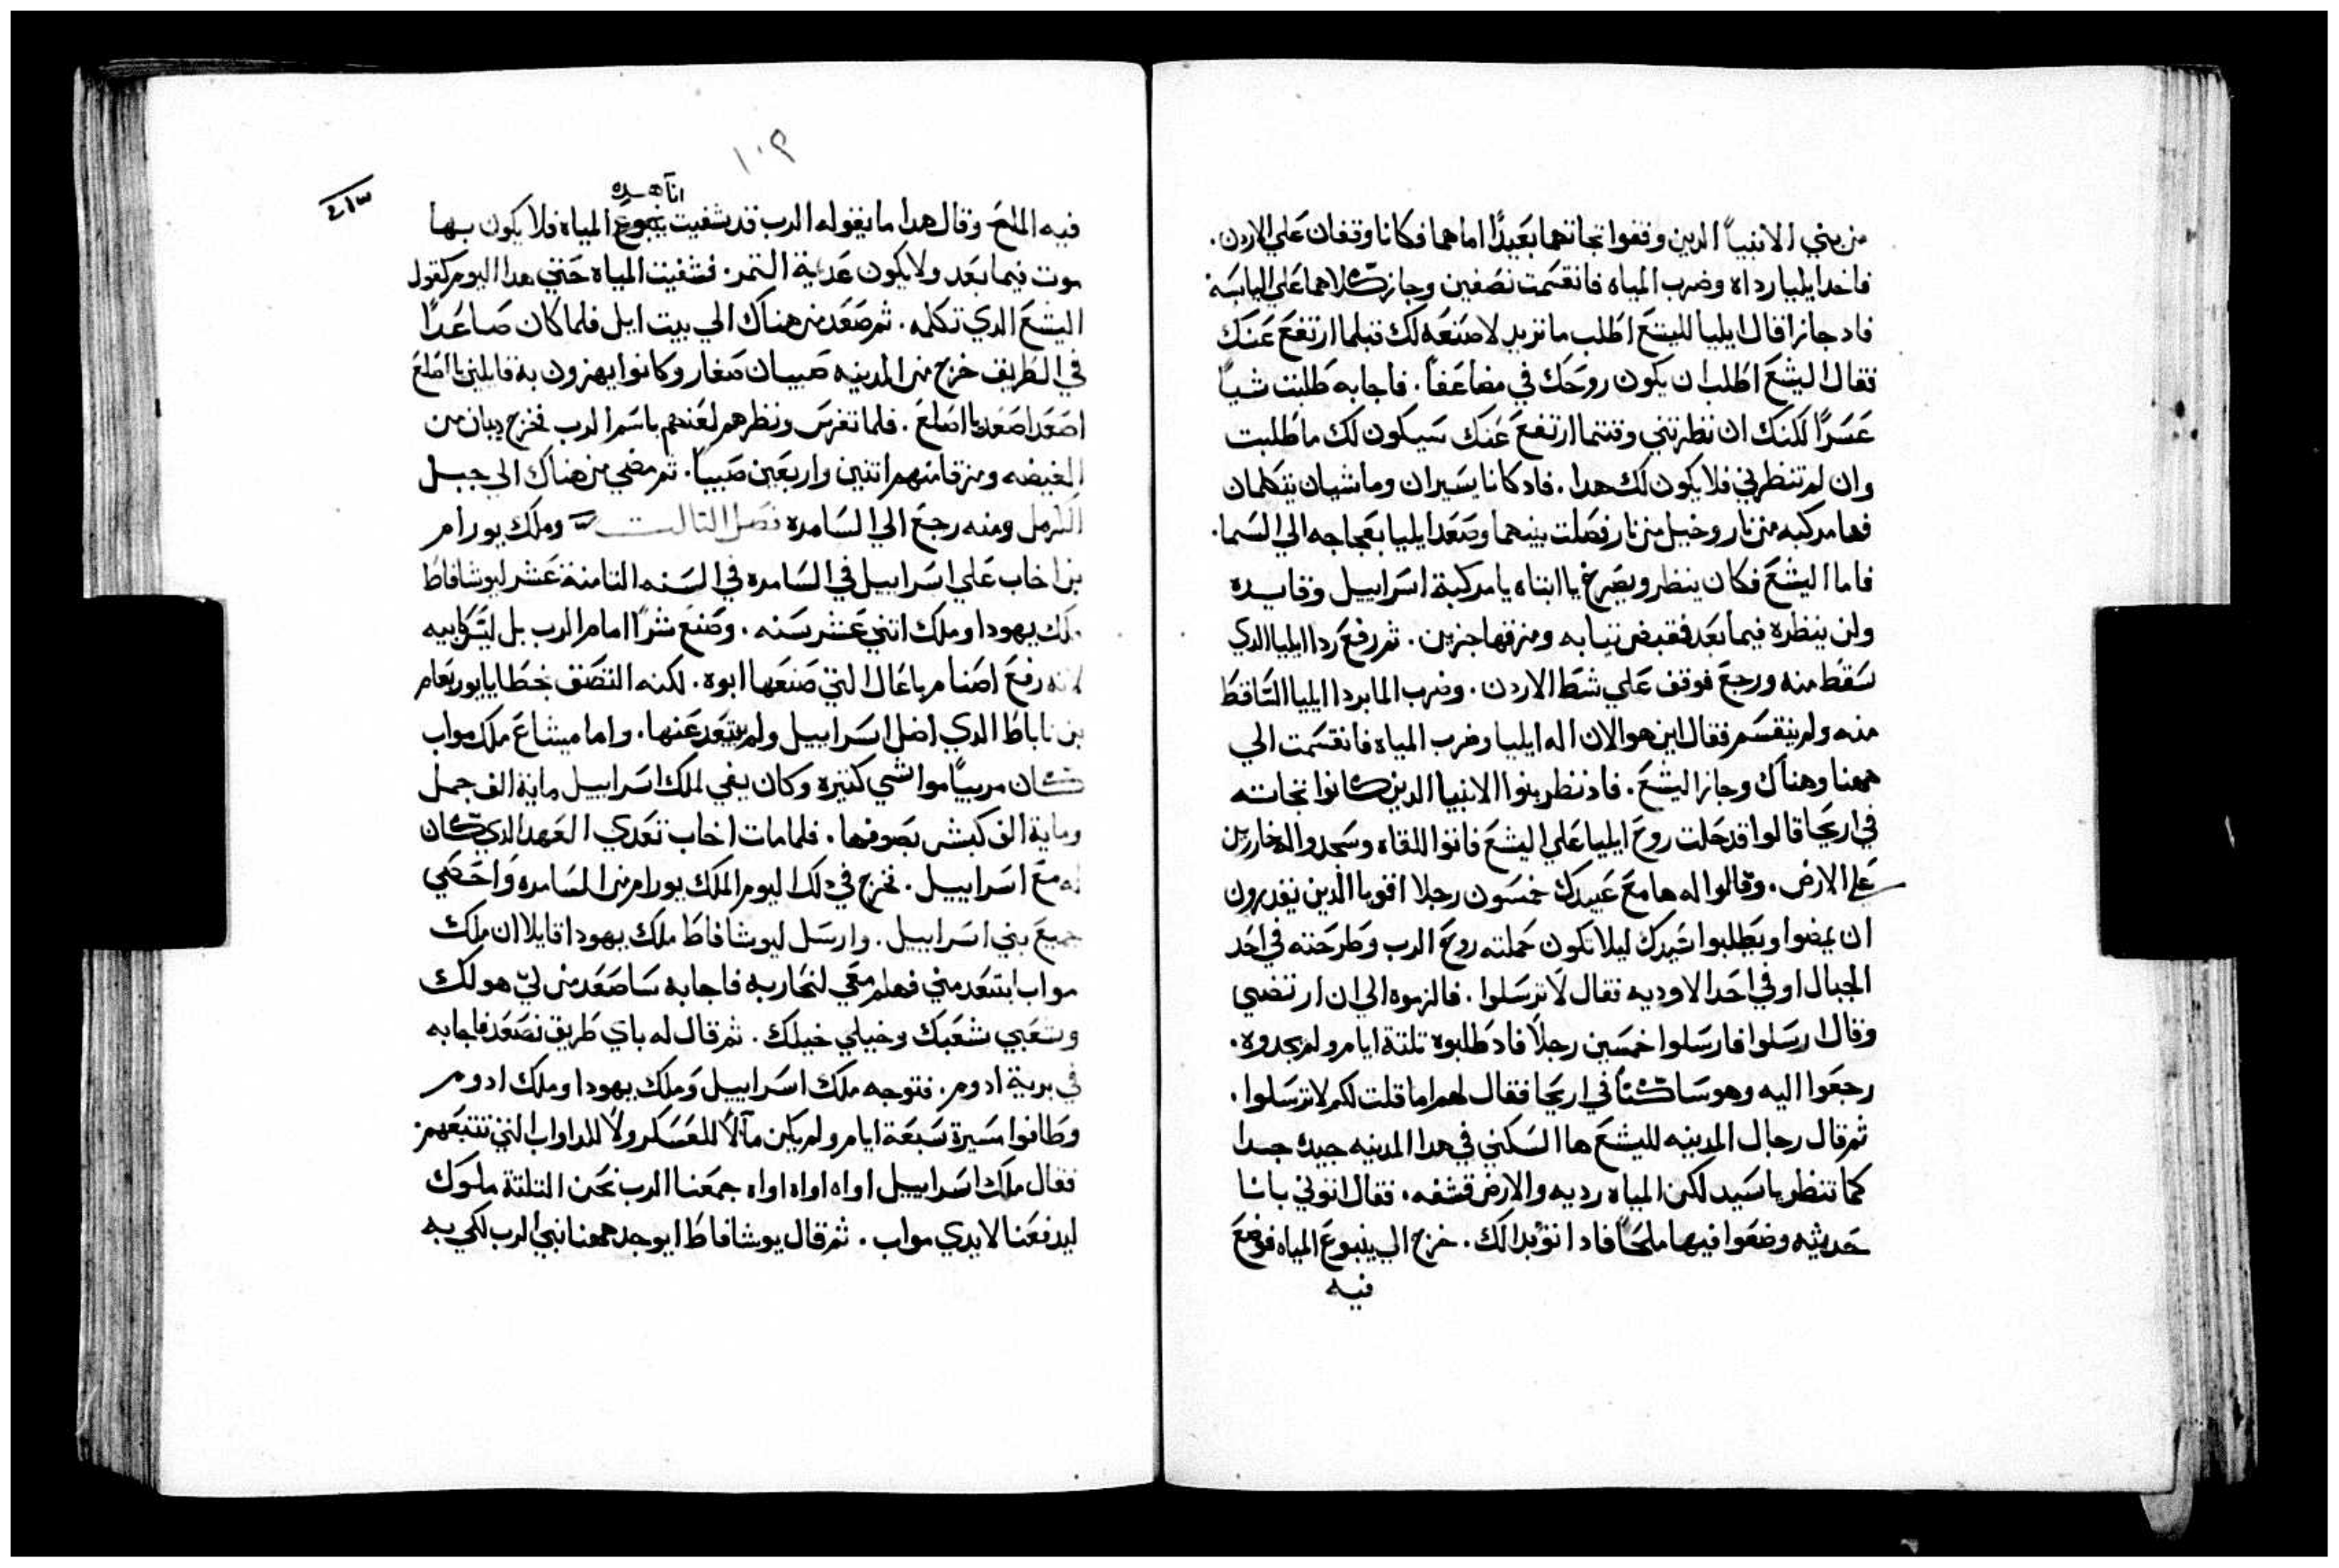 من بني الانبياً الدين وقفوا تجاتهما بعَيدًا امامهما فكانا وقفان عَلي الاردن.
فاخد ايليا رداه وضرب المياه فانقسَمت نصَفين وجاز كلاهما عَلي اليابسَه
فاد جازا قال ايليا لليشع اطلب ما تريد لاصَنعَه لك قبلما ارتفعَ عَنَك
فقال اليشعَ اطَلب ان يكون روحَك في مضاعَفاً. فاجابه طَلبت شياً
عَسَرًا لكنك ان نظرتني وقتما ارتفعَ عَنك سَيكون لك ما طَلبت
وان لم تنظرني فلا يكون لك هدا. فاد كانا يسَيران وماشيان يتكلمان
فها مركبه من نار وخيل من نار فصَلت بينهما وصَعَد ايليا بعَجاجه الي السَما.
فاما اليشَعَ فكان ينظر ويصَرخ يا ابتاه يا مركبة اسَراييل وقايده
ولن ينظره فيما بعَد فقبض تيابه ومزقها جزين. ثم رفعَ ردا ايليا الدي
سَقطَ منه ورجعَ فوقف عَلي شطَ الاردن. وضرب الما بردا ايليا السَاقطَ
منه ولم ينقسَم فقال اين هو الان اله ايليا وضرب المياه فانقسَمت الي
ههنا وهناك وجاز اليشعَ. فاد نظر بنوا الانبيا الدين كانوا تجاته
في اريحَا قالوا قد حَلت روحَ ايليا عَلي اليشعَ فاتوا للقاه وسَجدوا له خاررين
عَلي الارض. وقالوا له ها معَ عَبيدك خمسَون رجلا اقويا الذين يقدرون
ان يمضوا ويطَلبوا سَيدك ليلا تكون حَملته روحَ الرب وطَرحَته في احَد
الجبال او في احَد الاوديه فقال لا ترسَلوا. فالزموه الي ان ارتضي
وقال ارسَلوا فارسَلوا خمسَين رجلاً فاد طَلبوه تلتة ايام ولم يجدوه.
رجعَوا اليه وهو سَاكناً في اريحَا فقال لهم اما قلت لكم لا ترسَلوا.
ثم قال رجال المدينه لليشعَ ها السَكني في هدا المدينه جيده جدا
كما تنظر يا سَيد لكن المياه رديه والارض قشفه. فقال اتوني بانا
حَديثه وضعَوا فيها ملحَاً فاد اتوه بدالك. خرج الي ينبوعَ المياه فوضعَ
فيه
١٠٢
٤١٣
انآ هده
فيه الملحَ وقال هدا ما يقوله الرب قد شفيت ينبوعَ المياه فلا يكون بها
موت فيما بعَد ولا يكون عَديمة التمر. فشفيت المياه حَتي هدا اليوم كقول
اليشعَ الدي تكلمه. ثم صَعَد من هناك الي بيت ايل فلما كان صَاعَداً
في الطَريق خرج من المدينه صَبيان صَغار وكانوا يهزون به قايلين يا اصَلعَ
اصَعَد اصَعَد يا اصَلعَ. فلما تفرسَ ونظرهم لعَنهم باسَم الرب فخرج دبان من
الغيضه ومزقا منهم اتنين واربعَين صَبياً. ثم مضي من هناك الي جبل
الكرمل ومنه رجعَ الي السَامره فصَل التالت وملك يورام
بن اخاب عَلي اسَراييل في السَامره في السَنه التامنة عَشر ليوشافاطَ
ملك يهودا وملك اتني عَشر سَنه. وصَنعَ شراً امام الرب بل ليسَ كابيه
لانه رفعَ اصَنام باعَال التي صَنعَها ابوه. لكنه التصَق بخطَايا يوربعَام
بن ناباطَ الدي اضل اسَراييل ولم يبتعَد عَنها. واما ميشاعَ ملك مواب
كان مربياً مواشي كتيره وكان يفي لملك اسَراييل ماية الف جمل
وماية الف كبش بصَوفها. فلما مات اخاب تعَدي العَهد الدي كان
له معَ اسَراييل. فخرج في دلك اليوم الملك يورام من السَامره وَاحَصَي
جميعَ بني اسَراييل. وارسَل ليوشافاطَ ملك يهودا قايلا ان ملك
مواب ابتعَد مني فهلم معَي لنحَاربه فاجابه سَاصَعَد من لي هو لك
وشعَبي شعَبك وخيلي خيلك. ثم قال له باي طَريق نصَعَد فاجابه
في برية ادوم. فتوجه ملك اسَراييل وَملك يهودا وملك ادوم
وطَافوا مسَيرة سَبعَة ايام ولم يكن مآلاً للعَسَكر ولا للدواب التي تتبعَهم.
فقال ملك اسَراييل اواه اواه اواه جمعَنا الرب نحَن التلتة ملوك
ليدفعَنا لايدي مواب. ثم قال يوشافاطَ ايوجد ههنا نبي الرب لكي به